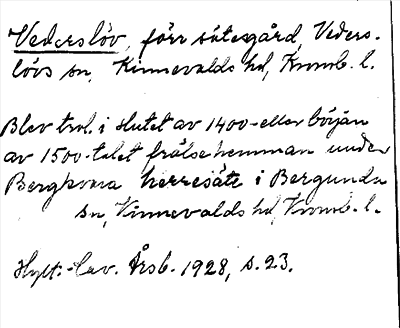 Vederslöv, förr sätesgård, Veders-
lövs sn, Kinnevalds hd, Kronob. l.
Blev trol. i slutet av 1400- eller början
av 1500-talet frälsehemman under
Bergkvara herresäte i Bergunda
sn, Kinnevalds hd, Kronob. l.
Hylt.-Cav. Årsb. 1928, s. 23.